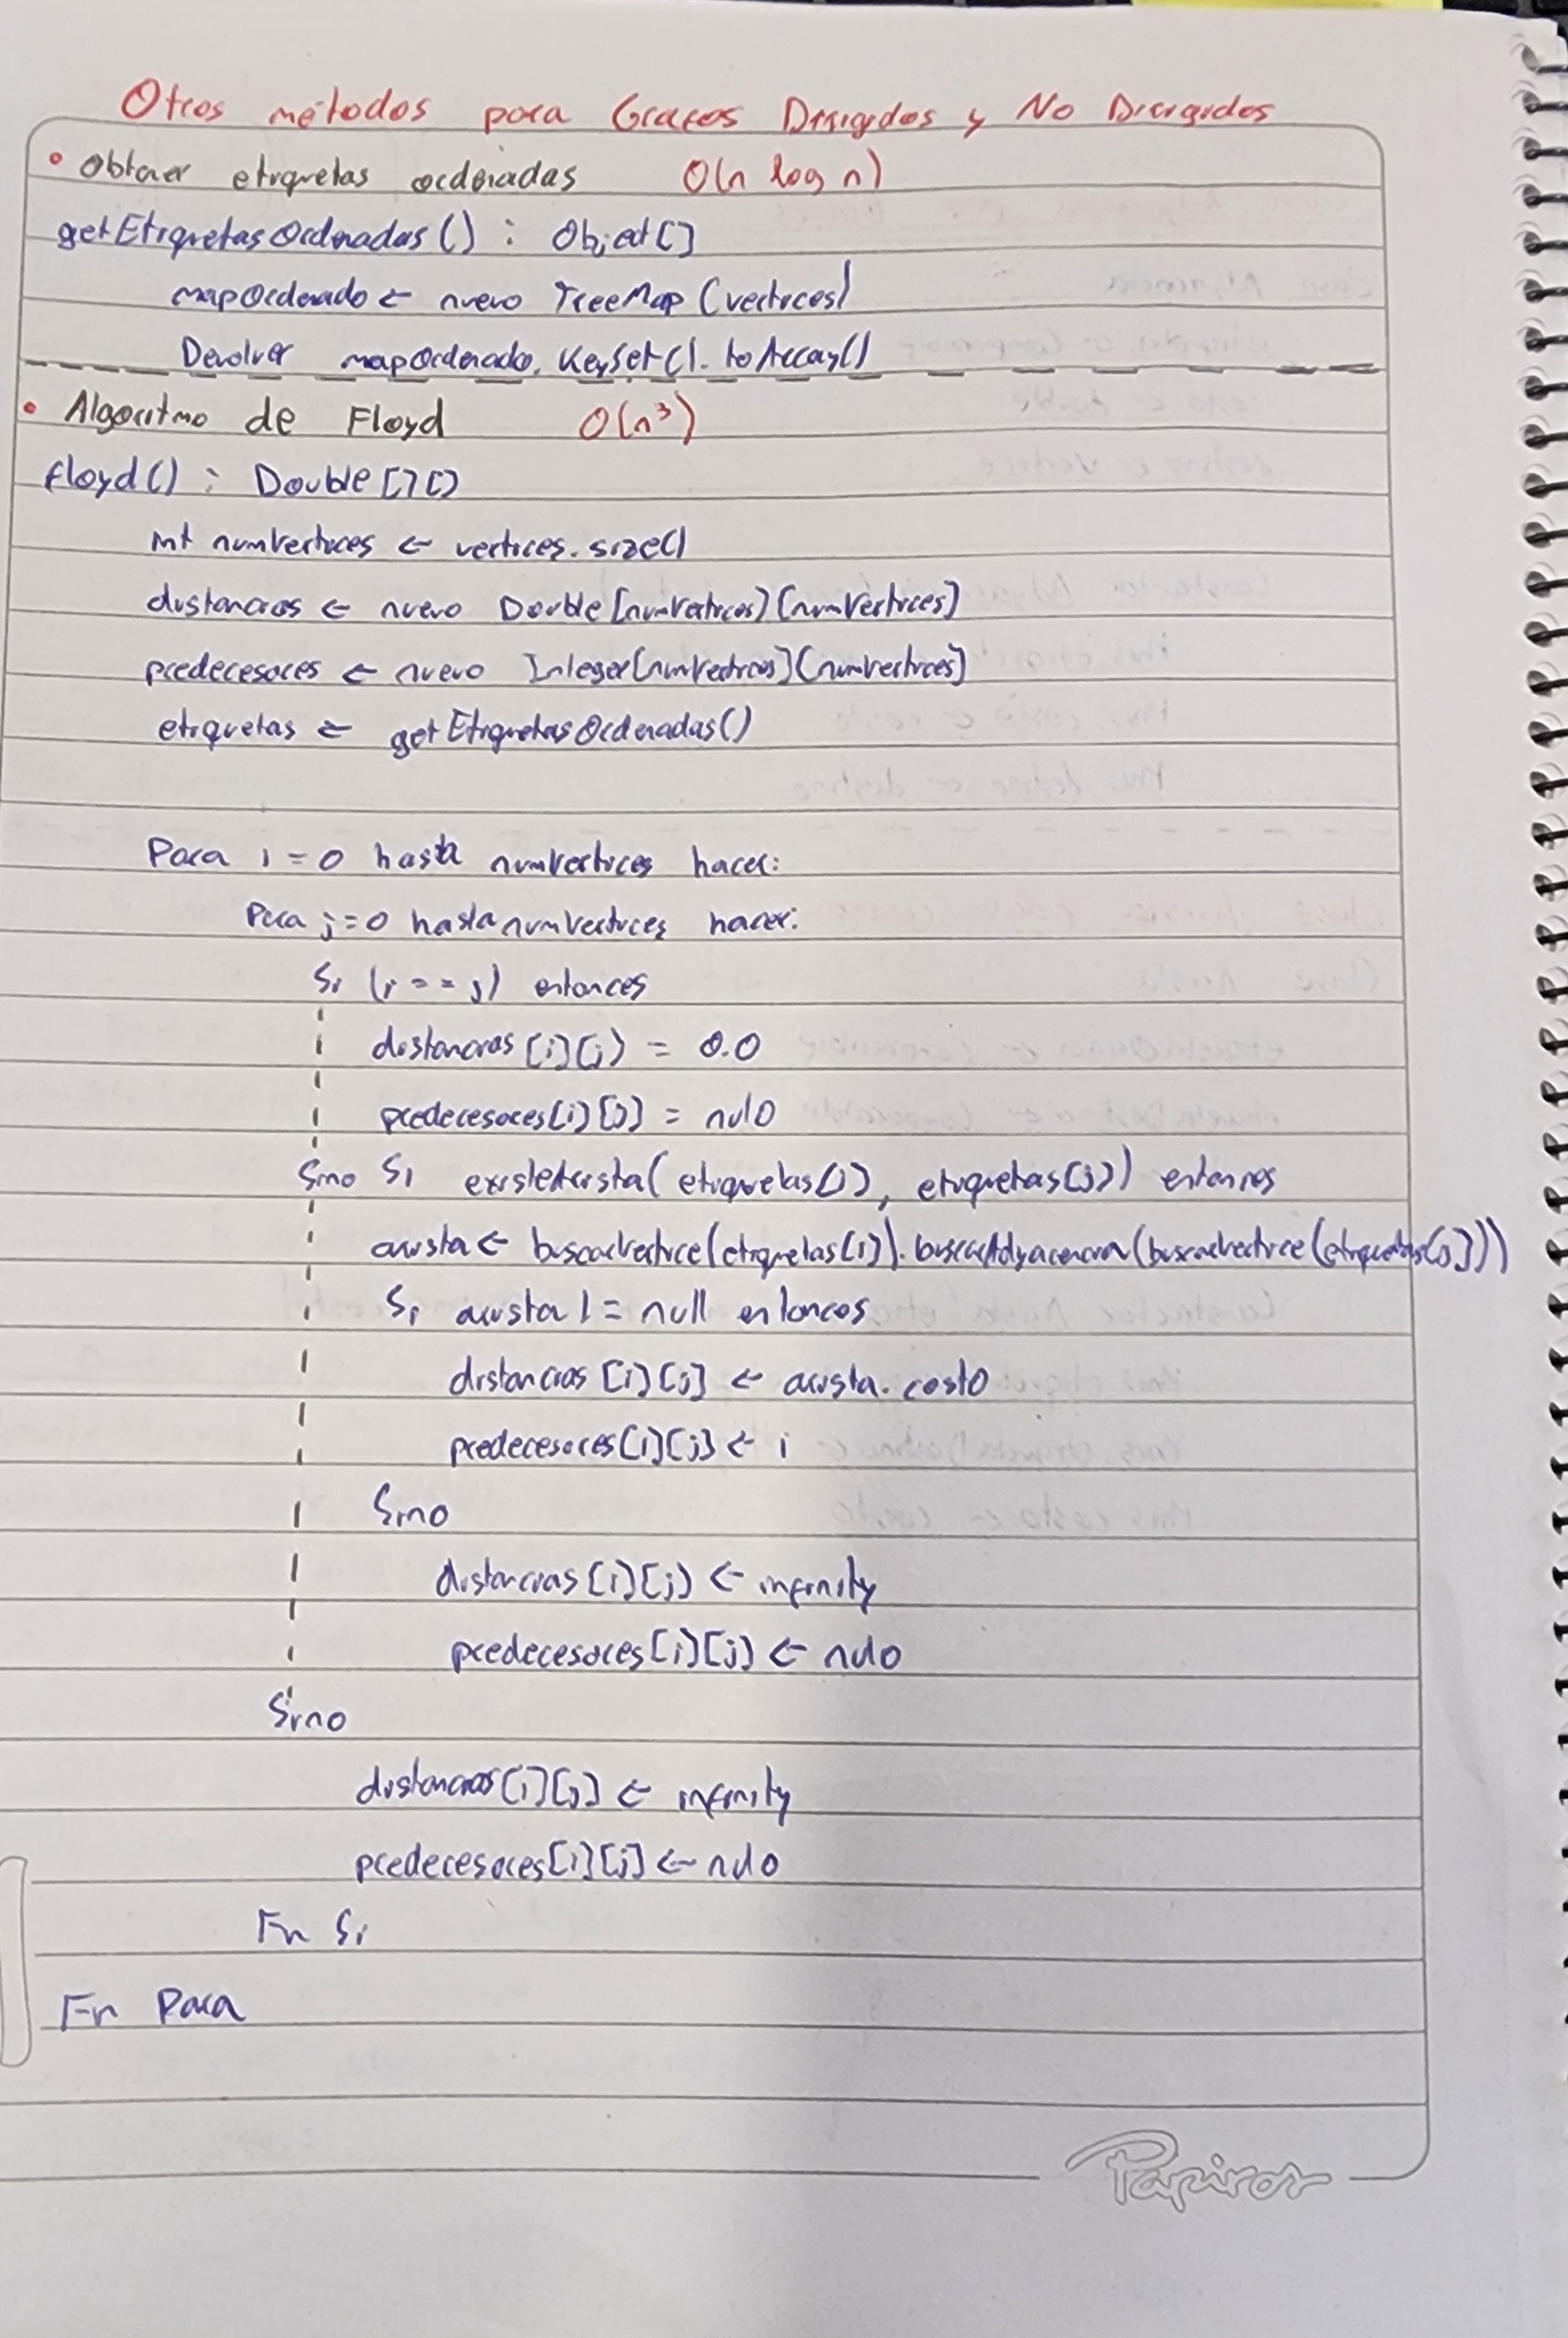 Otros métodos para Grafos Dirigidos y No Dirigidos
• Obtener etiquetas ordenadas O(n log n)
getEtiquetasOrdenadas() : Object[]
mapOrdenado ← nuevo TreeMap(vertices)
Devolver mapOrdenado.KeySet().toArray()
• Algoritmo de Floyd O(n³)
floyd() : Double[][]
int numVertices ← vertices.size()
distancias ← nuevo Double[numVertices][numVertices]
predecesores ← nuevo Integer[numVertices][numVertices]
etiquetas ← getEtiquetasOrdenadas()
Para i = 0 hasta numVertices hacer:
Para j=0 hasta numVertices hacer:
Si (i == j) entonces
distancias[i][j] = 0.0
predecesores[i][j] = nulo
Sino Si existeArista(etiquetas[i], etiquetas[j]) entonces
arista ← buscarVertice(etiquetas[i]).buscarAdyacencia(buscarVertice(etiquetas[j]))
Si arista != null entonces
distancias[i][j] ← arista.costo
predecesores[i][j] ← i
Sino
distancias[i][j] ← infinity
predecesores[i][j] ← nulo
Sino
distancias[i][j] ← infinity
predecesores[i][j] ← nulo
Fin Si
Fin Para
Papiros